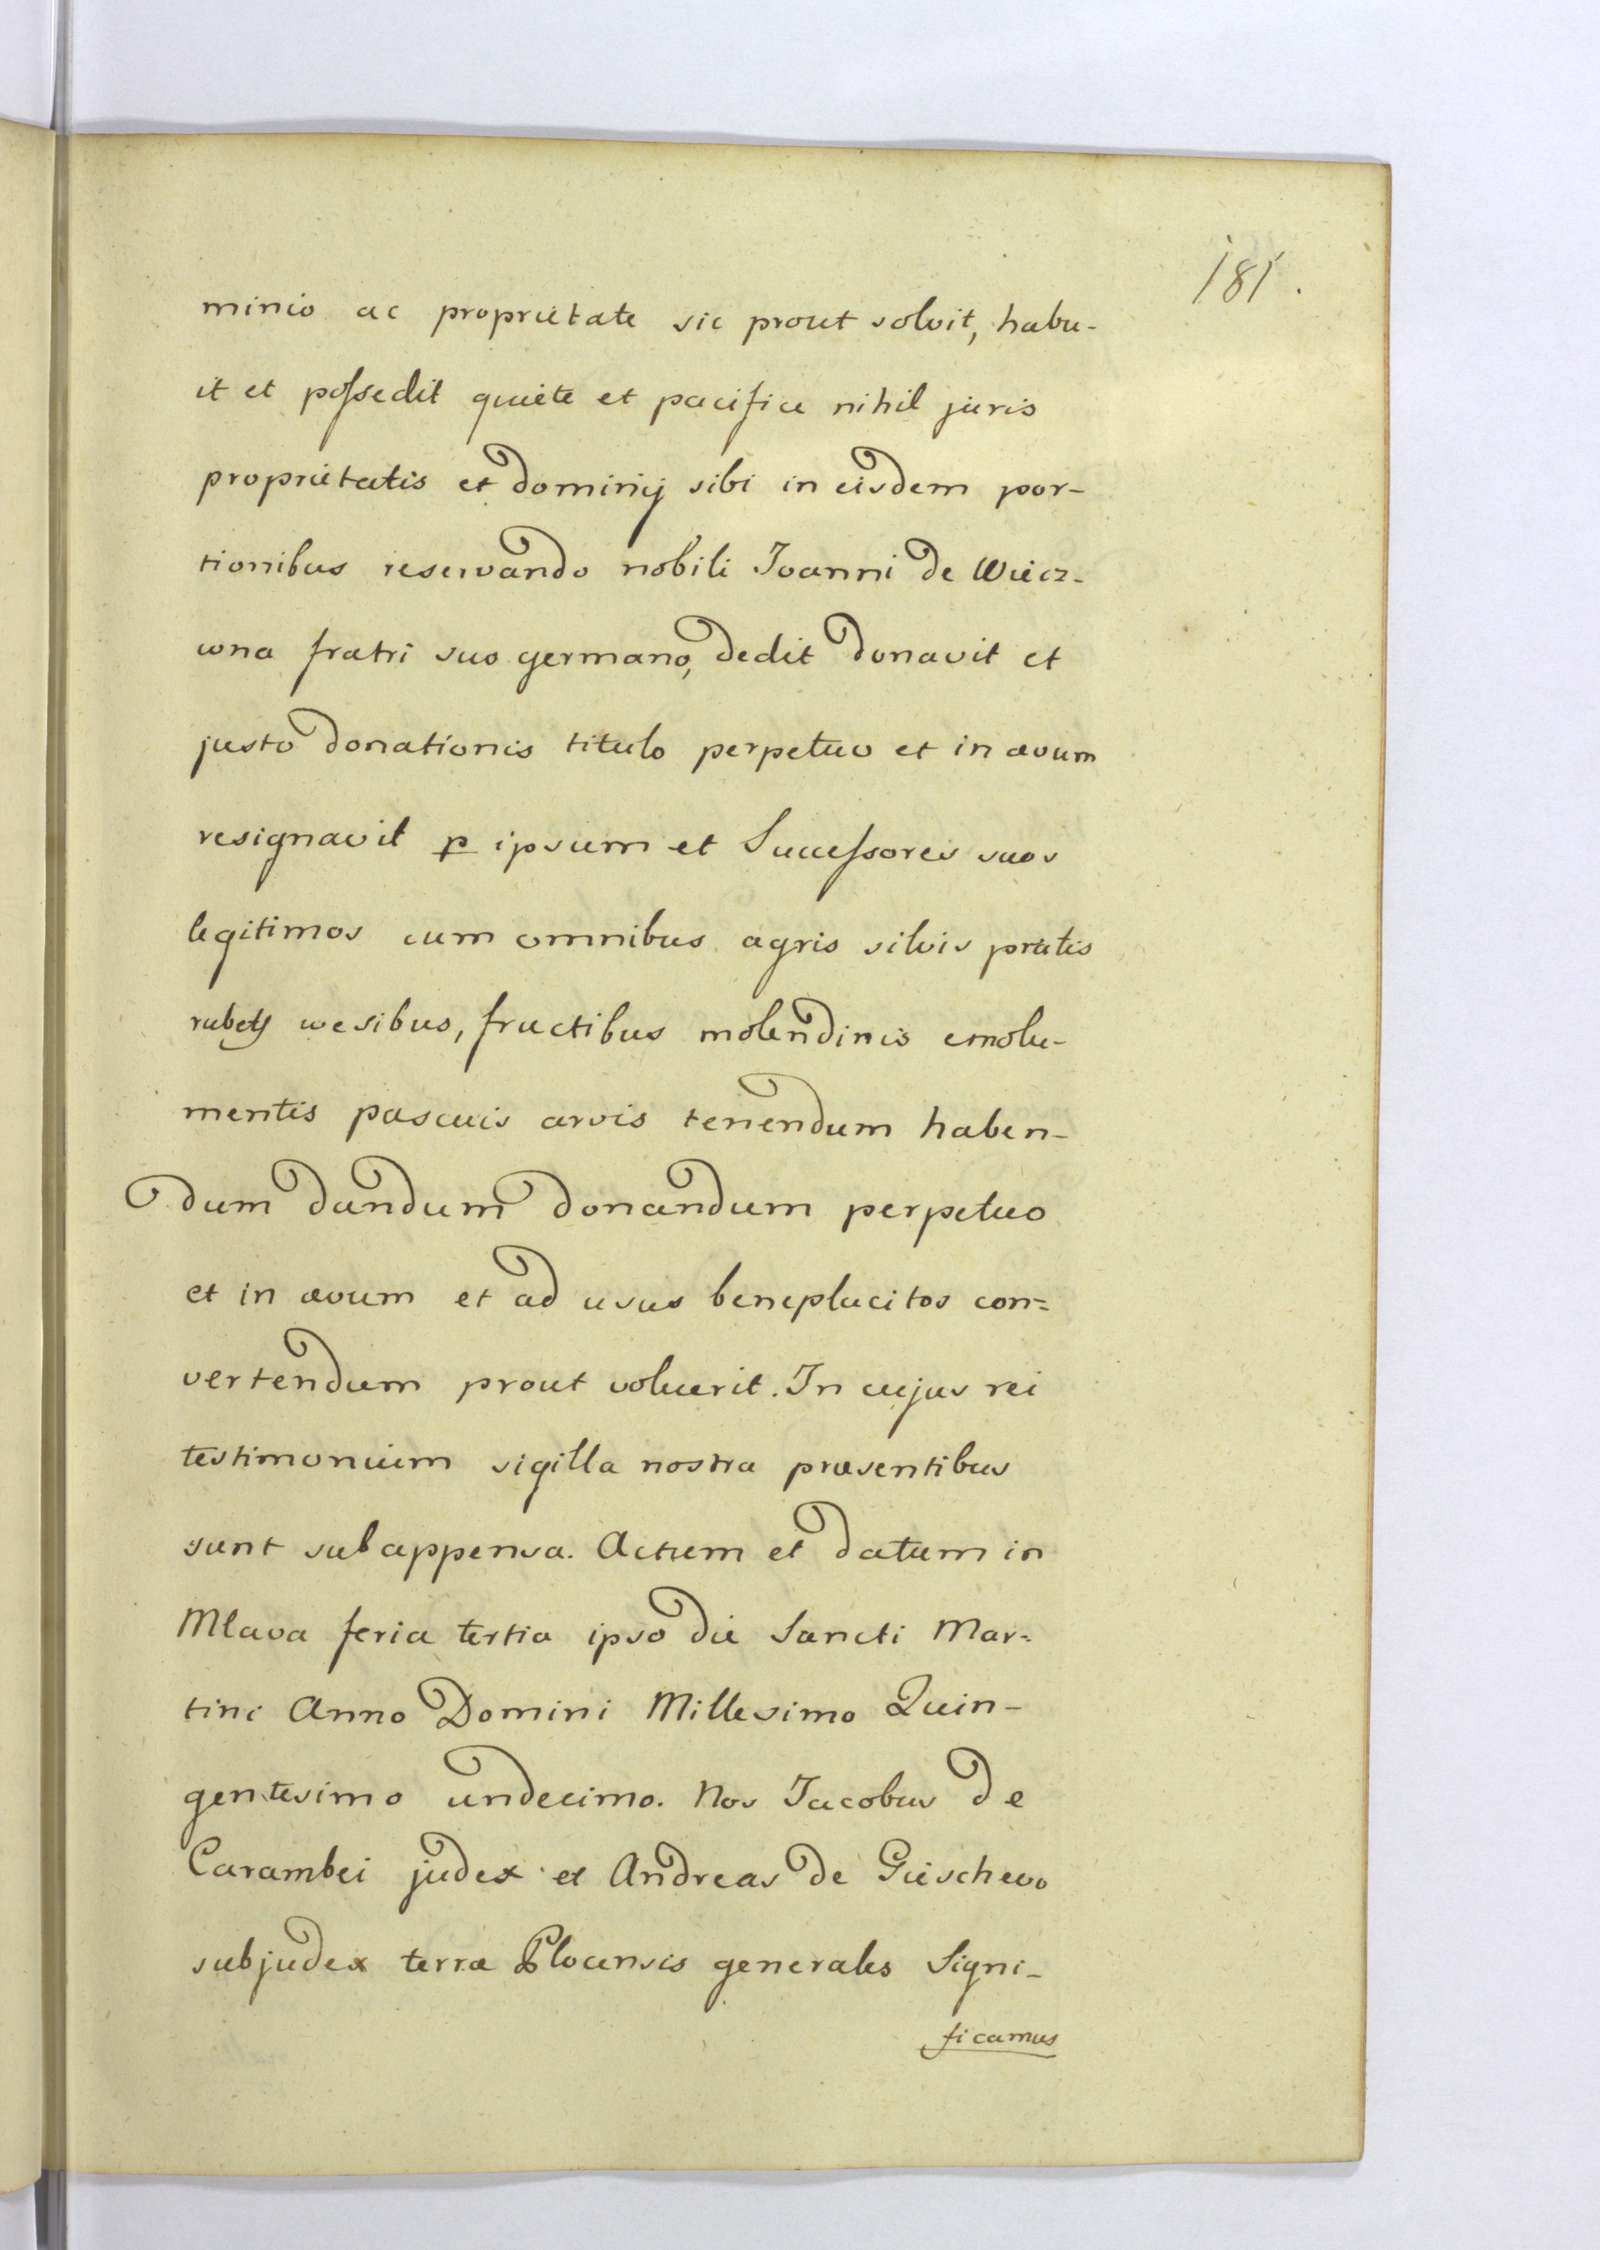 181.
minio ac proprietate sic prout solvit, habu-
it et possedit quiete et pacifice nihil juris
proprietatis et dominij sibi in eisdem por-
tionibus reservando nobili Joanni de Wiecz-
wna fratri suo germano, dedit donavit et
justo donationis titulo perpetuo et in aevum
resignavit p ipsum et Successores suos
legitimos cum omnibus agris silvis pratis
rubets wesibus, fructibus molendinis emolu-
mentis pascuis arvis tenendum haben-
dum dandum donandum perpetuo
et in aevum et ad usus beneplacitos con=
vertendum prout voluerit. In cujus rei
testimonium sigilla nostra praesentibus
sunt subappensa. Actum et datum in
Mlava feria tertia ipso die Sancti Mar=
tini Anno Domini Millesimo Quin-
gentesimo undecimo. Nos Jacobus de
Carambei judex et Andreas de Gieschevo
subjudex terrae Plocensis generales Signi-
ficamus